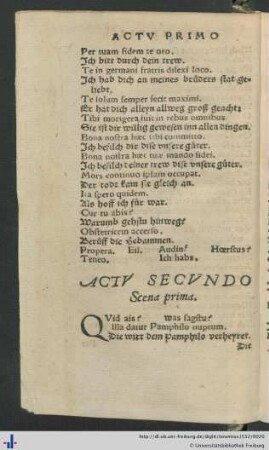 ACTV PRIMO
Per tuam fidem te oro.
Ich bitt durch dein trew.
Te in germani fratris dilexi loco.
Ich hab dich an meines brůders stat ge-
liebt.
Te solam semper fecit maximi.
Er hat dich alleyn allweg groß geacht.
Tibi morigera fuit in rebus omnibus
Sie ist dir willig gewesen inn allen dingen.
Bona nostra hæc tibi committo.
Ich befilch dir dise vnsere gůter.
Bona nostra hæc tuæ mando fidei.
Ich befilch deiner trew dise vnsere gůter.
Mors continuo ipsam occupat.
Der todt kam sie gleich an.
Ita spero quidem.
Als hoff ich für war.
Cur tu abis?
Warumb gehstu hinweg?
Obstetricem accerso.
Berüff die Hebammen.
Propera. Eil. Audin? Hœrstu?
Teneo. Ich habs.
ACTV SECVNDO
Scena prima.
QVid ais? was sagstu?
Illa datur Pamphilo nuptum.
Die wirt dem Pamphilo verheyret.
Die
http://dl.ub.uni-freiburg.de/diglit/terentius1532/0020
© Universitätsbibliothek Freiburg